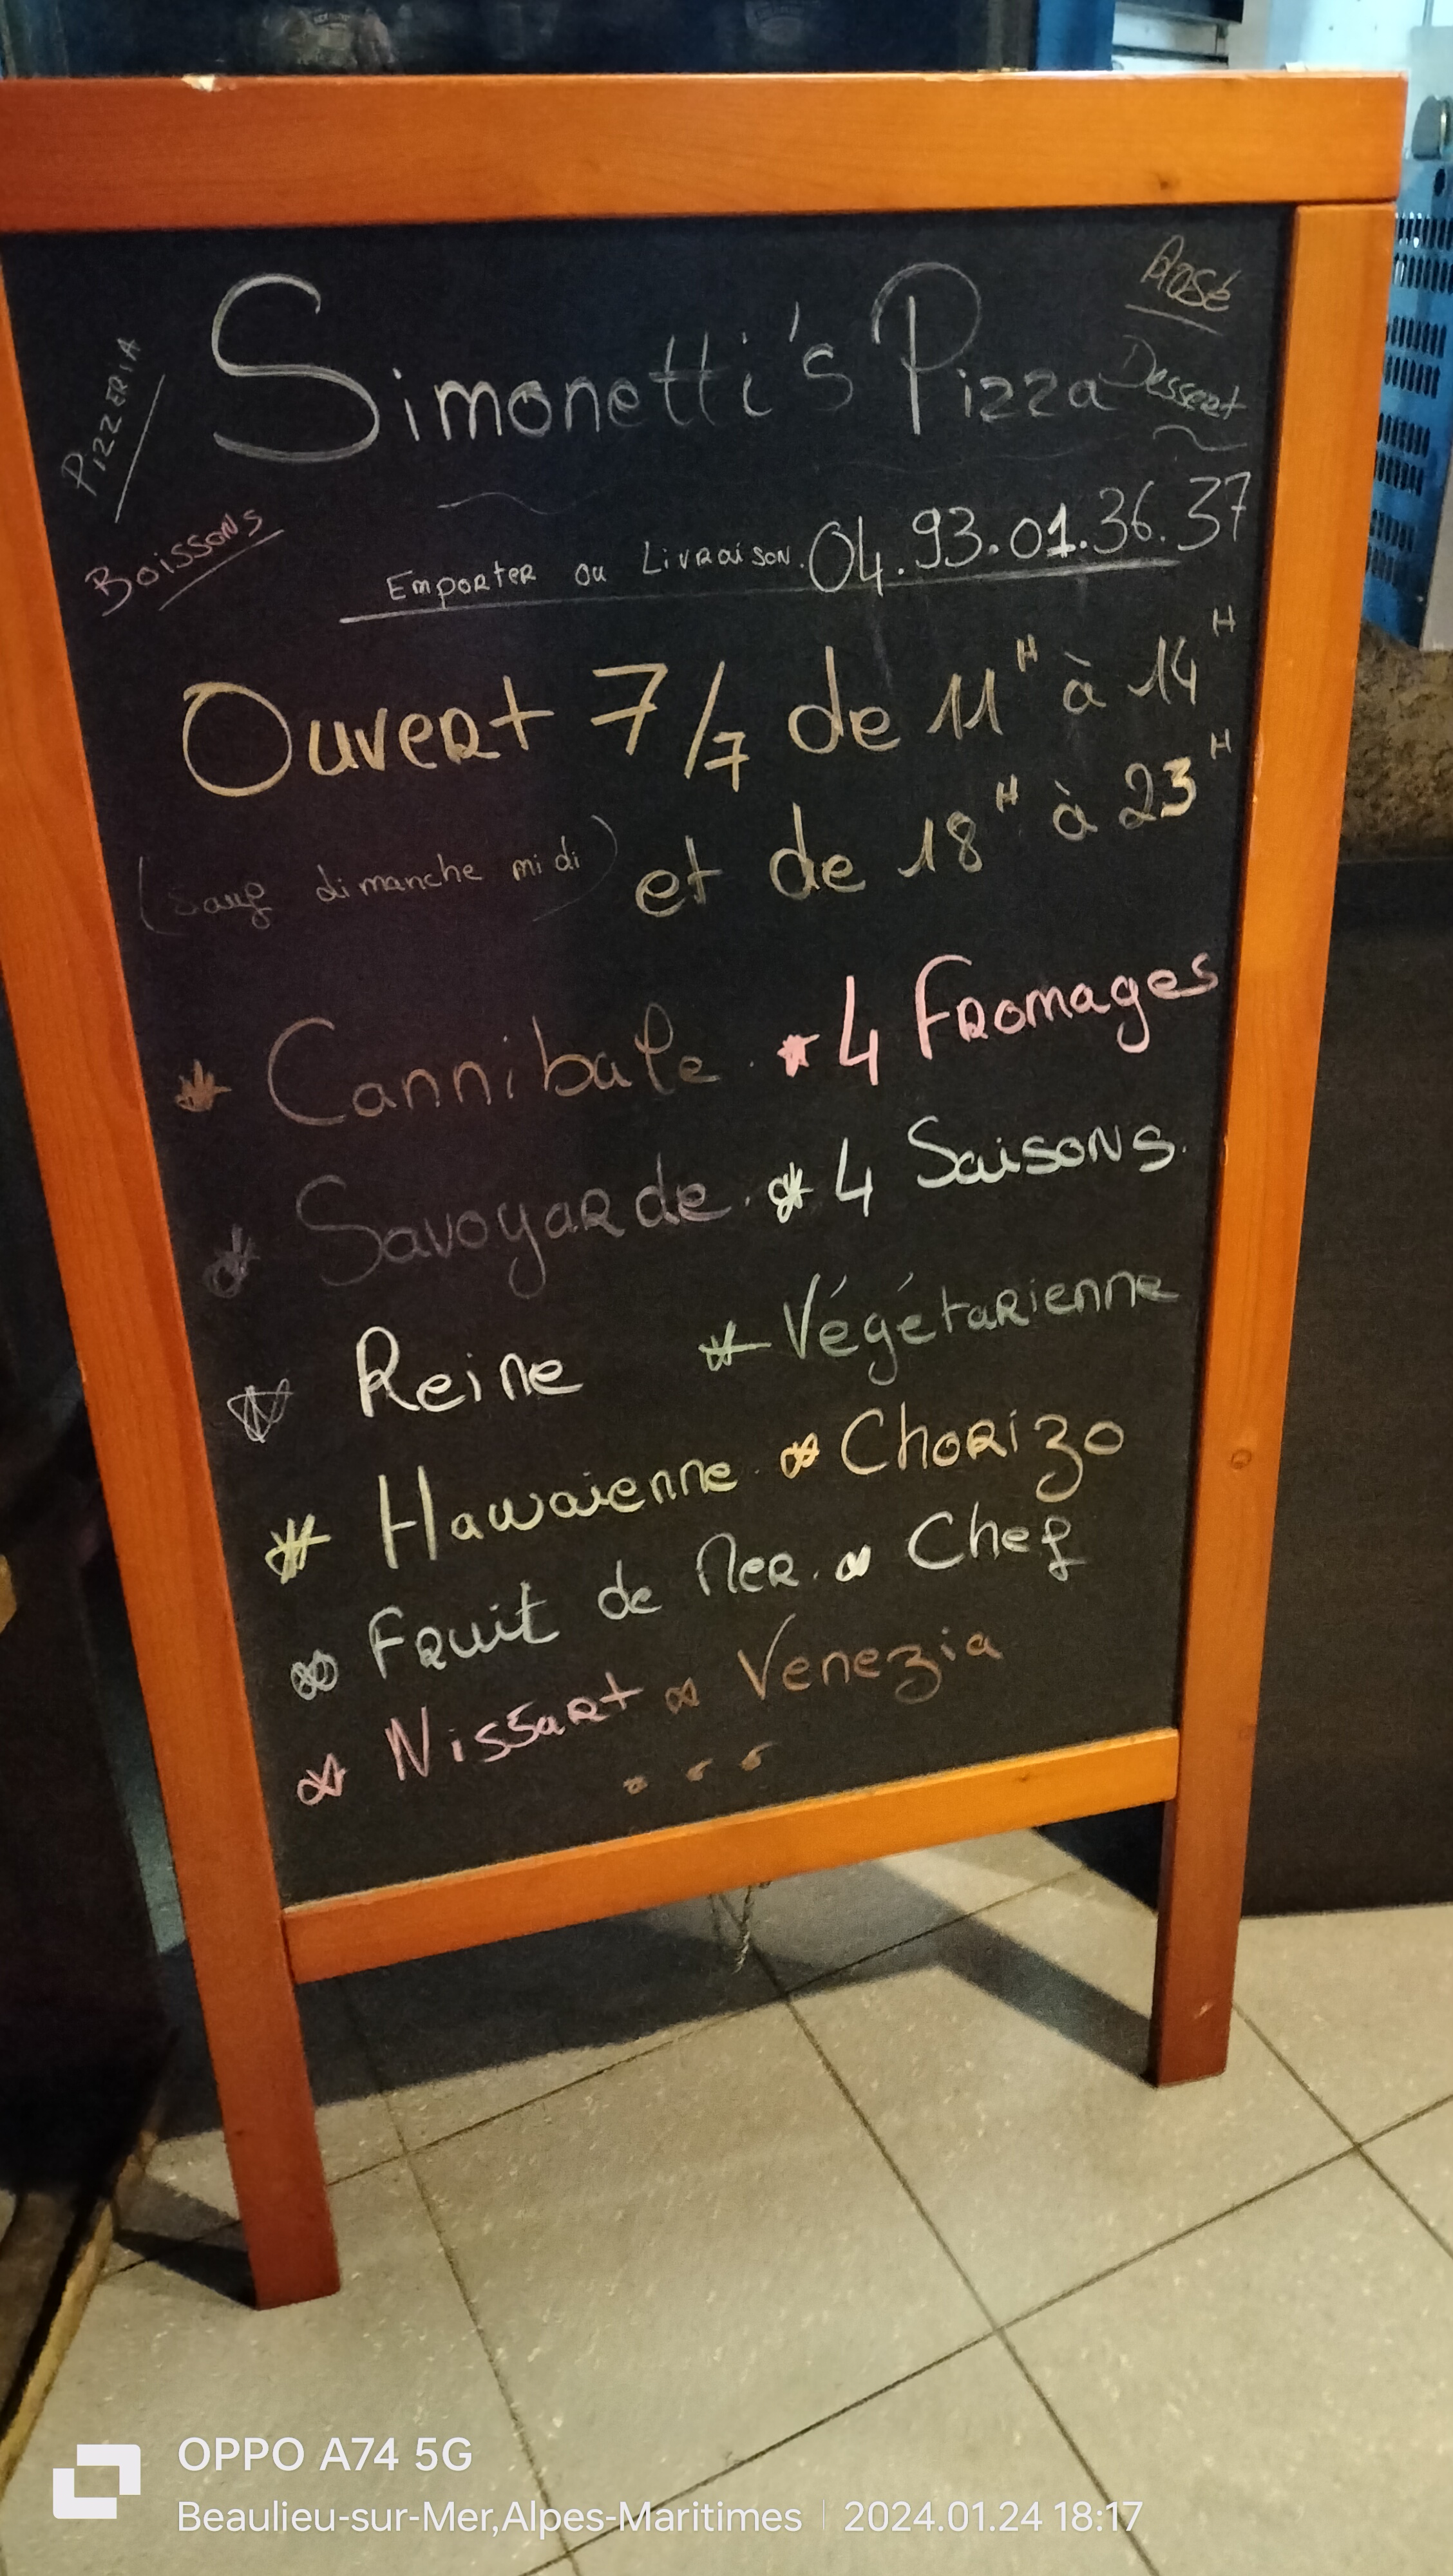 Rosé
PIZZERIA
Simonetti's Pizza
Dessert
Boissons
Emporter ou Livraison. 04.93.01.36.37
Ouvert 7/7 de 11H à 14H
(Sauf dimanche midi) et de 18H à 23H
* Cannibale * 4 Fromages
* Savoyarde * 4 Saisons
* Reine * Végétarienne
* Hawaienne * Chorizo
* Fruit de Mer * Chef
* Nissart * Venezia
...
OPPO A74 5G
Beaulieu-sur-Mer,Alpes-Maritimes | 2024.01.24 18:17